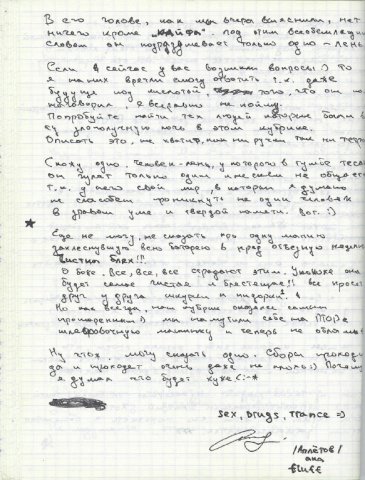 В его голове, как мы вчера выяснили, нет
ничего кроме "КАЙФА". под этим всеобъемлющим
словом он подразумевает только одно - лень
Если и сейчас у вас возникли вопросы :) то
я на них врятли смогу ответить т.к. даже
будучи под кислотой, того, что он но
наговорил, я всёравно не пойму.
Попробуйте найти тех людей которые были в
ту злополучную ночь в этом кубрике.
Описать это, не хватит, как ни ручки так ни терп
Скажу одно, человек-лень, у которого в тумбе
он только один и не с кем не
т.к. у него свой мир, в который я думаю
не способен проникнуть не один человек
в здравом уме и твёрдой памяти. Вот. :)
Еще не могу, не сказать про одну манию
захлеснувшую всю батарею в пред отъездную
Чистка Блях!!!
О Боже, Все, все, все страдают этим. она
будет самое чистая и блестящая!! все прося
друг у друга шкурки и
Но как всегда, наш кубрик оказался самым
мы намутили себе на
шлифовочную машинку и теперь не
Ну что ж, могу сказать одно. Сборы проходи
да и проходят очень даже не плохо :)
я думал что будет хуже
Sex, Drugs, Trance =)
/Апплётов/
aka